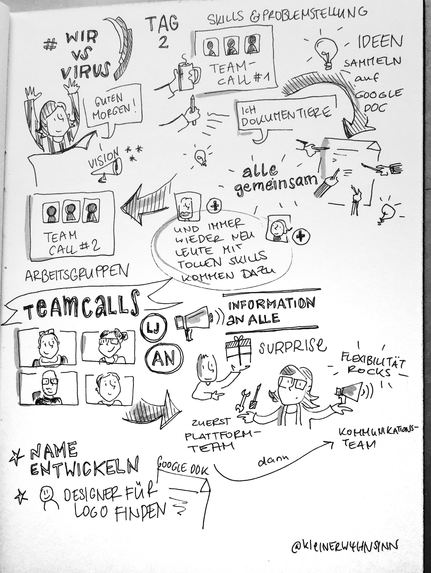 # WIR
VS
VIRUS
TAG
2
SKILLS & PROBLEMSTELLUNG
TEAM-
CALL #1
IDEEN
SAMMELN
auf
GOOGLE
DOC
GUTEN
MORGEN!
ICH
DOKUMENTIERE
VISION
alle
gemeinsam
TEAM
CALL #2
ARBEITSGRUPPEN
UND IMMER
WIEDER NEU
LEUTE MIT
TOLLEN SKILLS
KOMMEN DAZU
TEAMCALLS
LJ
AN
INFORMATION
AN ALLE
SURPRISE
FLEXIBILITÄT
ROCKS
ZUERST
PLATTFORM-
TEAM
dann
KOMMUNIKATIONS-
TEAM
NAME
ENTWICKELN
GOOGLE DOK
DESIGNER FÜR
LOGO FINDEN
@KLEINERW4HNS1NN